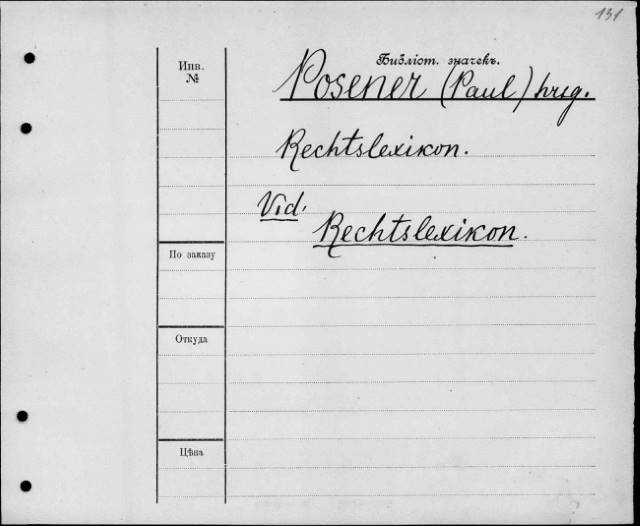 131
Инв.
№
Библіот. значекъ.
Posener (Paul) hrsg.
Rechtslexikon.
Vid.
Rechtslexikon.
По заказу
Откуда
Цѣна